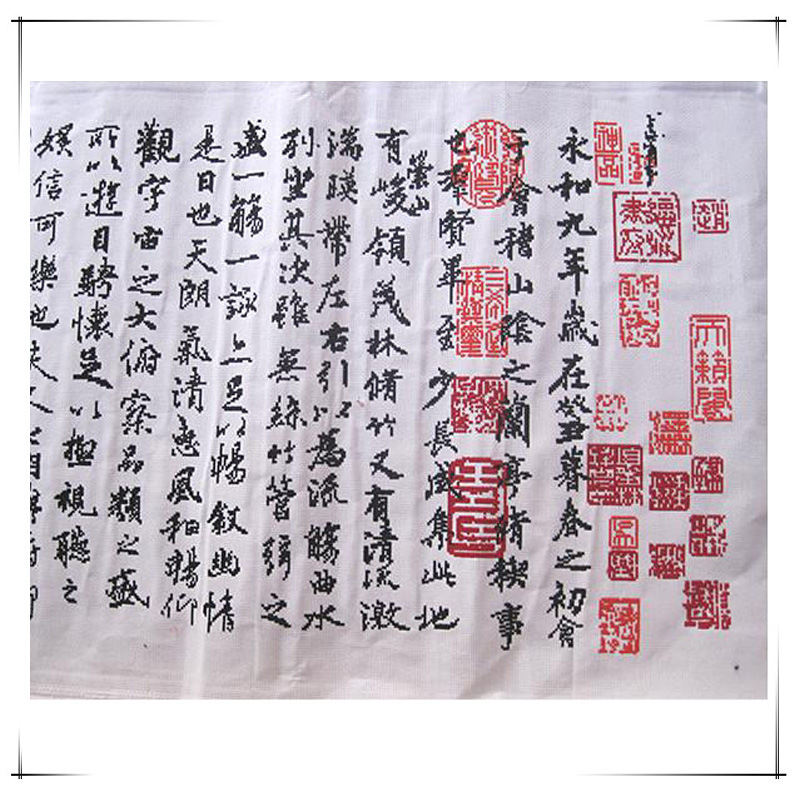 趙
天籟閣
神品
永和九年歲在癸丑暮春之初會
于會稽山陰之蘭亭脩稧事
也羣賢畢至少長咸集此地
有崇山峻領茂林脩竹又有清流激
湍暎帶左右引以為流觴曲水
列坐其次雖無絲竹管弦之
盛一觴一詠亦足以暢敘幽情
是日也天朗氣清惠風和暢仰
觀宇宙之大俯察品類之盛
所以遊目騁懷足以極視聽之
娛信可樂也夫人之相與俯仰